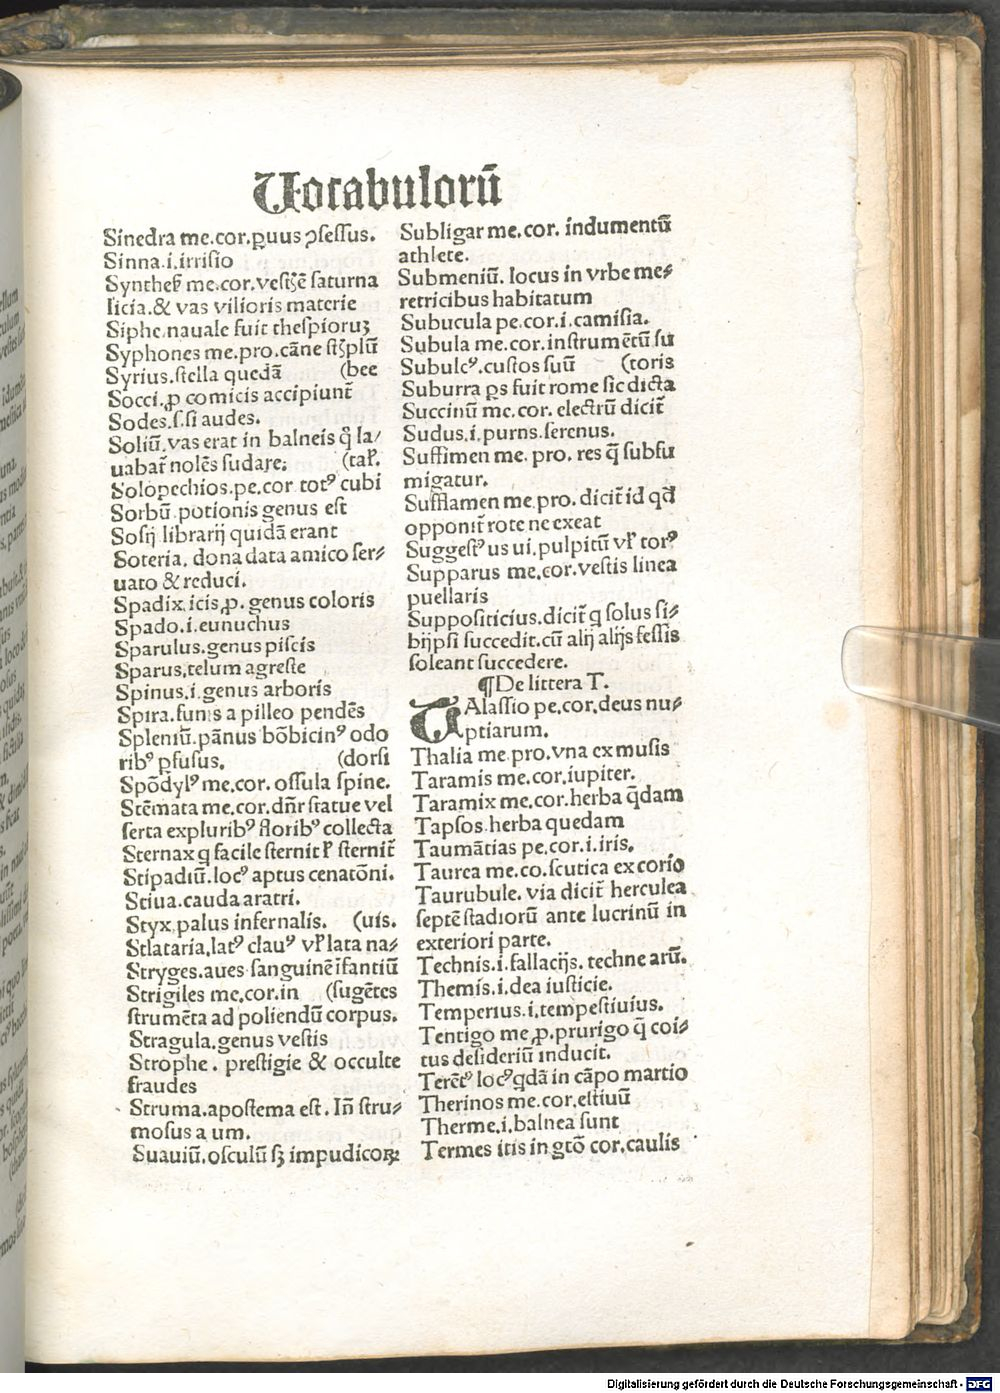 Vocabulorū
Sinedra me.cor.ꝑuus ↄsessus.
Sinna.i.irrisio
Syntheẜ me.cor.vestꝫē saturna
licia.& vas vilioris materie
Siphe.nauale fuit thespioruꝫ
Syphones me.pro.cāne stꝫplū
Syrius.stella quedā (bee
Socci.ꝓ comicis accipiunt̄
Sodes.s.si audes.
Soliū.vas erat in balneis q̄ la/
uabat̄ nolēs sudare. (taẜ.
Solopechios.pe.cor totꝰ cubi
Sorbū.potionis genus est
Sosij librarij quidā erant
Soteria. dona data amico ser⸗
uato & reduci.
Spadix.icis.ꝓ. genus coloris
Spado.i.eunuchus
Sparulus.genus piscis
Sparus.telum agreste
Spinus.i.genus arboris
Spira.funis a pilleo pendēs
Spleniū.pānus bōbicinꝰ odo
ribꝰ ꝑfusus. (dorsi
Spōdylꝰ me.cor. ossula spine.
Stēmata me.cor.dn̄r statue vel
serta expluribꝰ floribꝰ collecta
Sternax q facile sternit ẜ sternit̄
Stipadiū.locꝰ aptus cenatōni.
Stiua.cauda aratri.
Styx palus infernalis. (uis.
Stlataria.latꝰ clauꝰ vẜ lata na⸗
Stryges.aues sanguinē īfantiū
Strigiles me.cor.in (sugētes
strumēta ad poliendū corpus.
Stragula.genus vestis
Strophe. prestigie & occulte
fraudes
Struma.apostema est. In̄ stru⸗
mosus a um.
Suauiū.osculū sꝫ impudicoꝝ
Subligar me.cor. indumentū
athlete.
Submeniū. locus in vrbe me⸗
retricibus habitatum
Subucula pe.cor.i.camisia.
Subula me.cor.instrumētū su
Subulcꝰ.custos suū (toris
Suburra ꝑs fuit rome sic dicta
Succinū me.cor. electrū dicit̄
Sudus.i.purns.serenus.
Suffimen me. pro. res q̄ subfu
migatur.
Sufflamen me.pro. dicit̄ id qd̄
opponit̄ rote ne exeat
Suggestꝰ us ui.pulpitū vẜ torꝰ
Supparus me.cor.vestis linea
puellaris
Suppositicius.dicit̄ q solus si⸗
bijpsi succedit.cū alij alijs fessis
soleant succedere.
¶De littera T.
TAlassio pe.cor.deus nu⸗
ptiarum.
Thalia me.pro.vna ex musis
Taramis me.cor.iupiter.
Taramix me.cor.herba q̄dam
Tapsos.herba quedam
Taumātias pe.cor.i.iris.
Taurea me.co.scutica ex corio
Taurubule. via dicit̄ herculea
septē stadiorū ante lucrinū in
exteriori parte.
Technis.i.fallacijs. techne arū.
Themis.i.dea iusticie.
Temperius.i.tempestiuius.
Tentigo me.ꝓ.prurigo q̄ coi⸗
tus desideriū inducit.
Terētꝰ locꝰ qdā in cāpo martio
Therinos me.cor.estiuū
Therme.i.balnea sunt
Termes itis in gtō cor.caulis
Digitalisierung gefördert durch die Deutsche Forschungsgemeinschaft - DFG